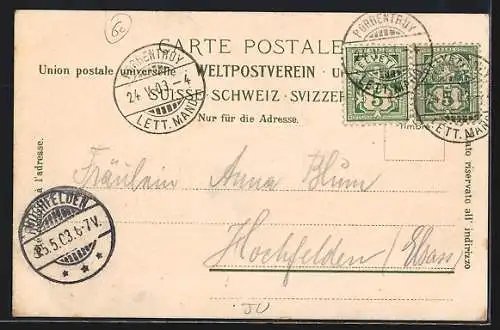 60
CARTE POSTALE
Union postale universelle · WELTPOSTVEREIN · U
SUISSE · SCHWEIZ · SVIZZER
Nur für die Adresse.
PORRENTRUY
24.V.03.-4
LETT. MAND
PORRENTRUY
LETT. MAND
LETT. MAND
HELVETIA
5
5
à l'adresse.
Timbre
riservato all' indirizzo
Fräulein Anna Blum
Hochfelden (Elsass)
HOCHFELDEN
25.5.03.6-7V.
JU